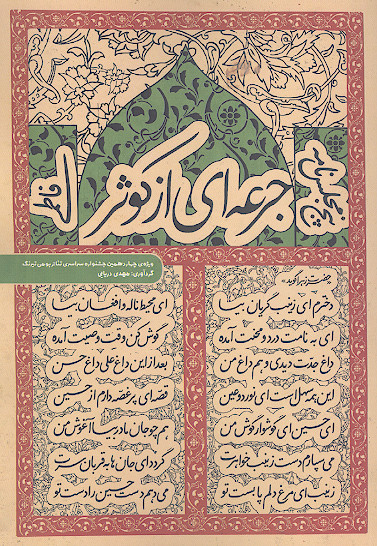 جرعه ای از کوثر
ویژه‌ی چهاردهمین جشنواره سراسری تئاتر بومی تیرنگ
گردآوری: مهدی دریایی
حضرت زهرا گوید:
دخترم ای زینب گریان بیا ای محیط ناله و افغان بیا
ای به نامت درد و محنت آمده گوش کن وقت وصیت آمده
داغ جدت دیدی و هم داغ من بعد از این داغ علی داغ حسن
این همه سهل است ای نور دو عین قصه ای پر غصه دارم از حسین
ای حسین ای گوشوار گوش من هم چو جان مادر بیا آغوش من
می سپارم دست زینب خواهرت گردد ای جان تا به قربان سرت
زینب ای مرغ دلم پابست تو می دهم دست حسین را دست تو